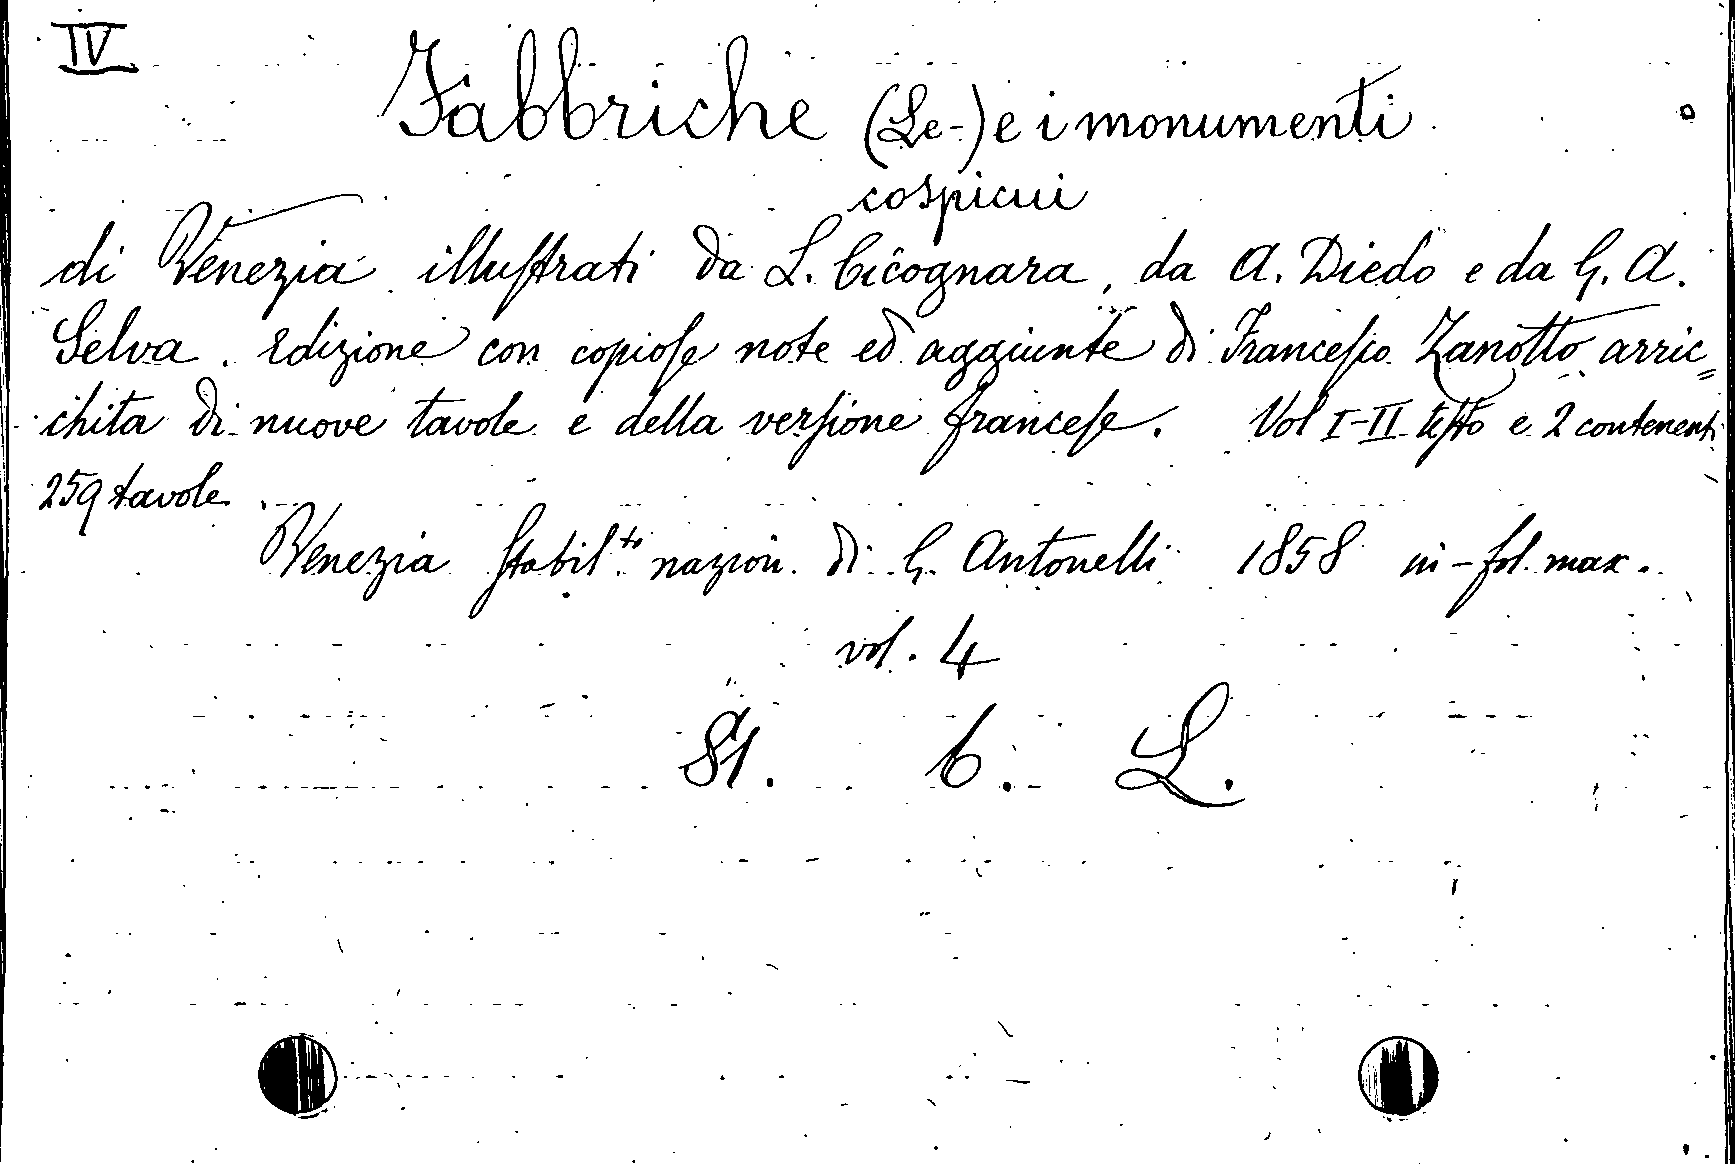 IV
Fabbriche (Le-) e i monumenti
cospicui
di Venezia illustrati da L. Cicognara, da A. Diedo e da G. A.
Selva. Edizione con copiose note ed aggiunte di Francesco Zanotto arric=
chita di nuove tavole e della versione francese. Vol I-II testo e 2 contenenti
259 tavole.
Venezia Stabil.to nazion. di G. Antonelli 1858 in-fol. max.
vol. 4
St. C. L.